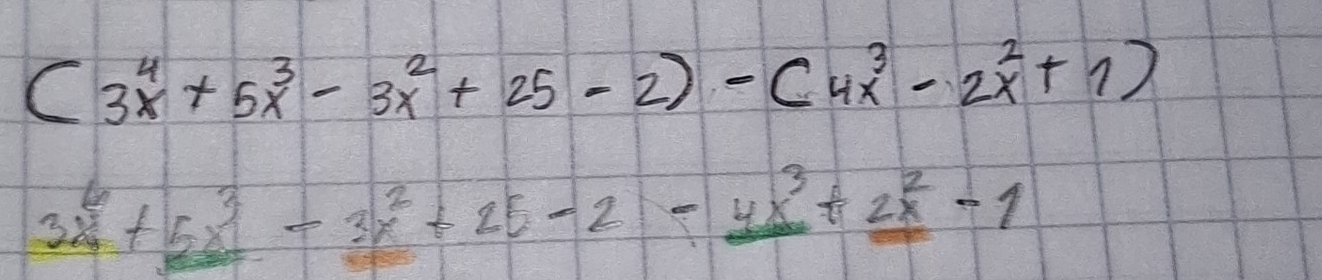 (3x⁴ + 5x³ - 3x² + 25 - 2) - (4x³ - 2x² + 1)
3x⁴ + 5x³ - 3x² + 25 - 2 - 4x³ + 2x² - 1